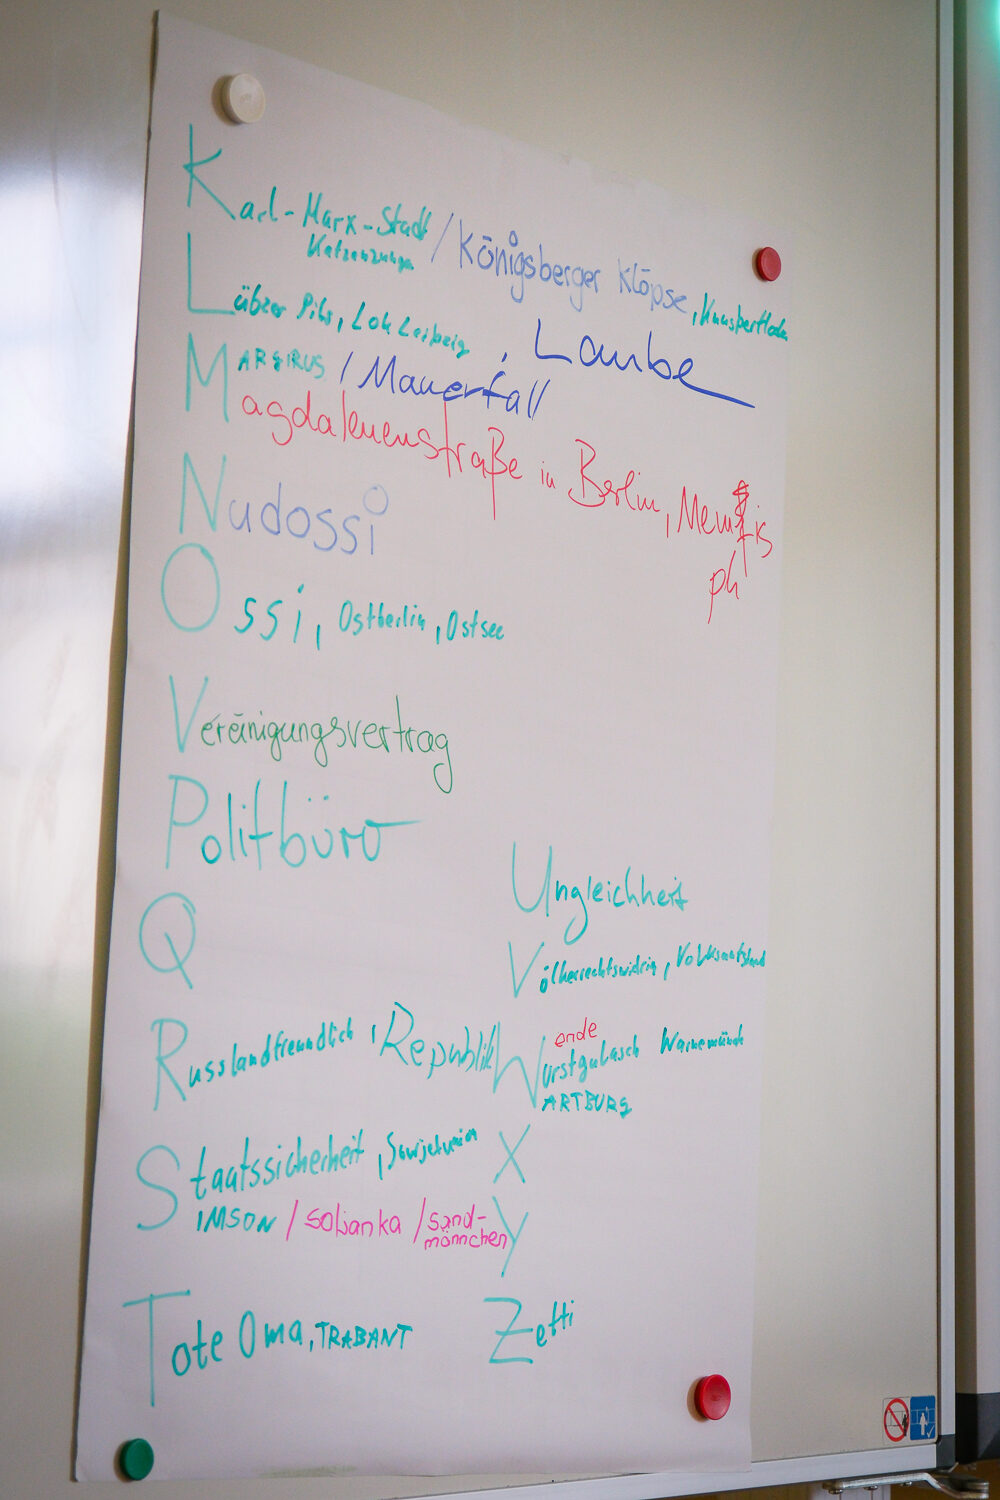 Karl-Marx-Stadt / Königsberger Klöpse, Knusperflocken
Katzenzungen
Lübzer Pils, Lok Leipzig, Laube
MARGIRUS / Mauerfall
Magdalenenstraße in Berlin, Memfis
ph
Nudossi
Ossi, Ostberlin, Ostsee
Vereinigungsvertrag
Politbüro
Q
Russlandfreundlich, Republik
Staatssicherheit, Sowjetunion
IMSON / Soljanka / Sand-
männchen
Tote Oma, TRABANT
Ungleichheit
Völkerrechtswidrig, Volksaufstand
ende
Wurstgulasch Warnemünde
ARTBURG
X
Y
Zetti